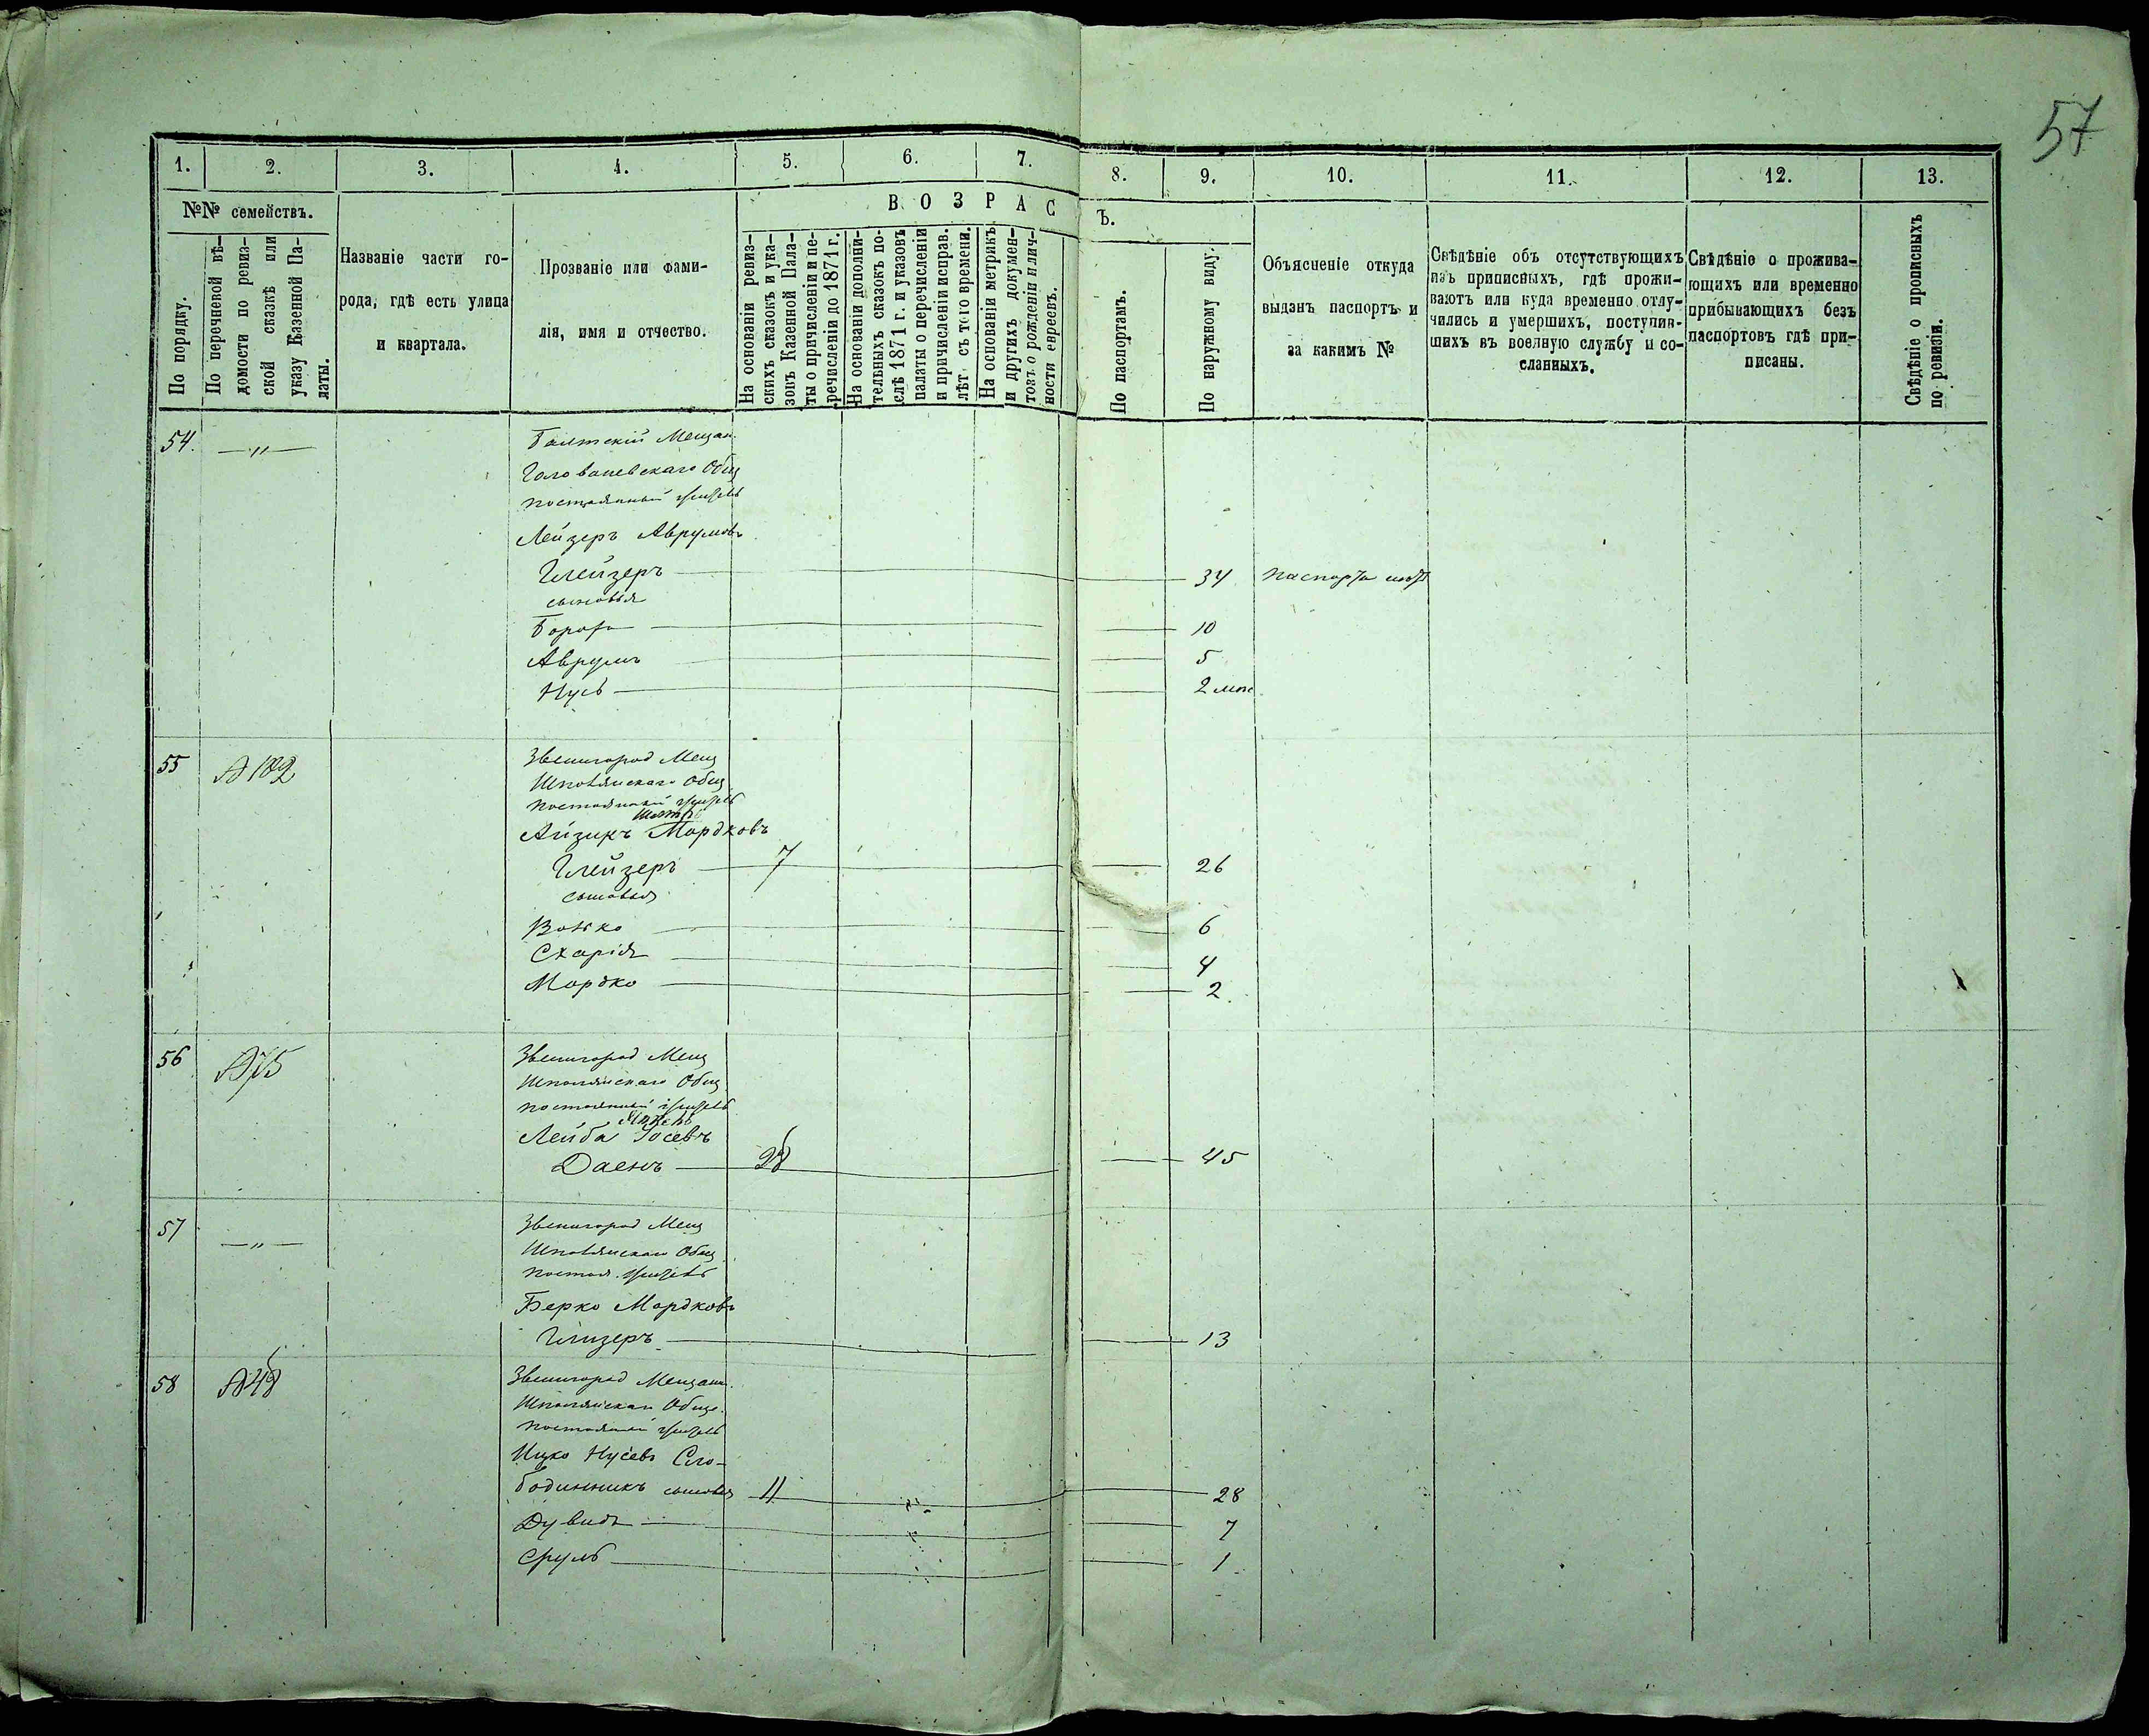 57
1. 2. 3. 4. 5. 6. 7. 8. 9. 10. 11. 12. 13.
№№ семействъ.
По порядку.
По перечневой вѣ-
домости по ревиз-
ской сказкѣ или
указу Казенной Па-
латы.
Названіе части го-
рода, гдѣ есть улица
и квартала.
Прозваніе или фами-
лія, имя и отчество.
ВОЗРАСТЪ.
На основаніи ревиз-
скихъ сказокъ и ука-
зовъ Казенной Пала-
ты о причисленіи и пе-
речисленіи до 1871 г.
На основаніи дополни-
тельныхъ сказокъ по-
слѣ 1871 г. и указовъ
палаты о перечисленіи
и причисленіи исправ.
лѣт съ того времени.
На основаніи метрикъ
и другихъ докумен-
товъ о рожденіи и лич-
ности евреевъ.
По паспортамъ.
По наружному виду.
Объясненіе откуда
выданъ паспортъ и
за какимъ №
Свѣдѣніе объ отсутствующихъ
изъ приписныхъ, гдѣ прожи-
ваютъ или куда временно отлу-
чились и умершихъ, поступив-
шихъ въ военную службу и со-
сланныхъ.
Свѣдѣніе о прожива-
ющихъ или временно
прибывающихъ безъ
паспортовъ гдѣ при-
писаны.
Свѣдѣніе о прописныхъ
по ревизіи.
54. — " — Балтскій Мещан.
Голованевскаго Общ
постоянный житель
Лейзеръ Аврумовъ
Глейзеръ 34 паспорта
сыновья
Борох 10
Аврумъ 5
Нусь 2 мѣс
55 № 182 Звенигород Мещ
Шполянскаго Общ
постоянный житель
Айзикъ Мордковъ
Глейзеръ 7 26
сыновья
Волько 6
Схарія 4
Мордко 2
56 № 75 Звенигород Мещ
Шполянскаго Общ
постоянный житель
Лейба Іосевъ
Даенъ 28 45
57 — " — Звенигород Мещ
Шполянскаго Общ
постоя. житель
Берко Мордковъ
Глизеръ 13
58 № 48 Звенигород Мещан.
Шполянскаго Обще.
постоянный житель
Ицко Нусевъ Сло-
бодинникъ сыновья 11 28
Дувидъ 7
Сруль 1